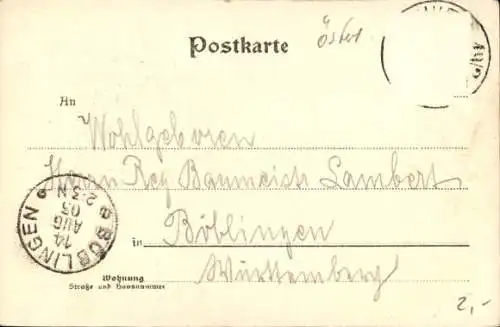 Postkarte
Öster
An
Wohlgeboren
Herrn Reg Baumeistr Lambert
BÖBLINGEN
14
AUG
03
2-3 N
in Böblingen
Württemberg
Wohnung
Straße und Hausnummer
2,-